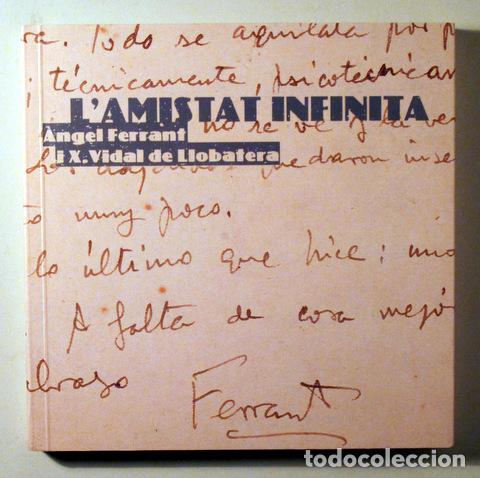 ra. Todo se aquilata por p
técnicamente, psicotécnicam
L'AMISTAT INFINITA
Àngel Ferrant
no se ve y la ve
i X. Vidal de Llobatera
quedaron inse
to muy poco.
lo último que hice; uno
A falta de cosa mejó
brazo
Ferrant
todocoleccion